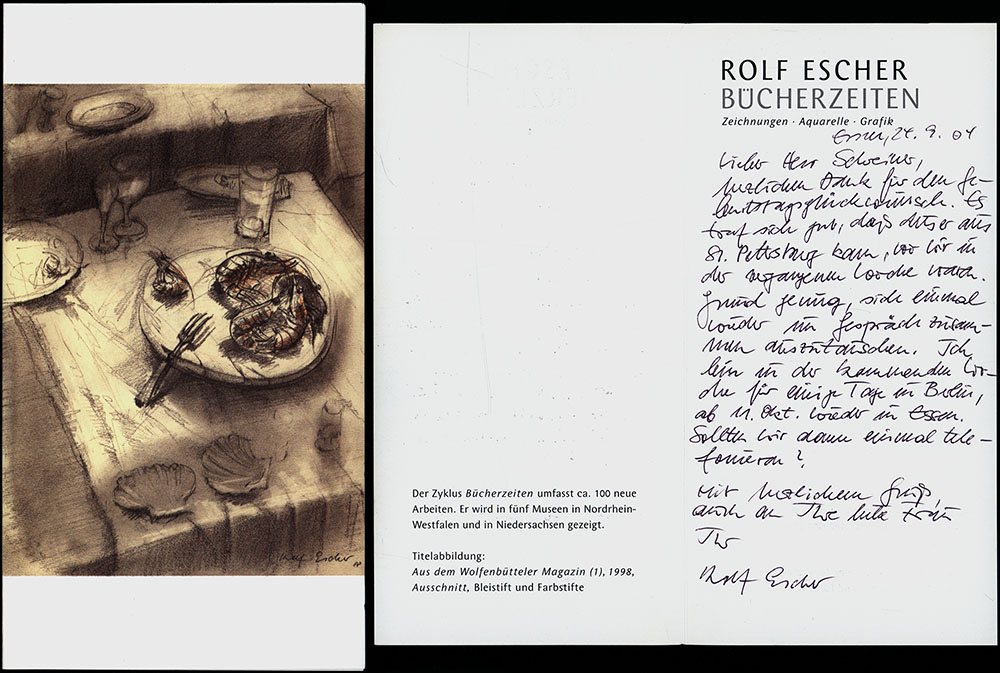 Rolf Escher
ROLF ESCHER
BÜCHERZEITEN
Zeichnungen · Aquarelle · Grafik
Essen, 24. 9. 04
Lieber Herr Schreiner,
herzlichen Dank für den Ge-
burtstagsglückwunsch. Es
traf sich gut, daß dieser aus
St. Petersburg kam, wo wir in
der vergangenen Woche waren.
Grund genug, sich einmal
wieder im Gespräch zusam-
men auszutauschen. Ich
bin in der kommenden Wo-
che für einige Tage in Berlin,
ab 11. Okt. wieder in Essen.
Sollten wir dann einmal tele-
fonieren?
Mit herzlichem Gruß,
auch an Ihre liebe Frau
Ihr
Rolf Escher
Der Zyklus Bücherzeiten umfasst ca. 100 neue
Arbeiten. Er wird in fünf Museen in Nordrhein-
Westfalen und in Niedersachsen gezeigt.
Titelabbildung:
Aus dem Wolfenbütteler Magazin (1), 1998,
Ausschnitt, Bleistift und Farbstifte